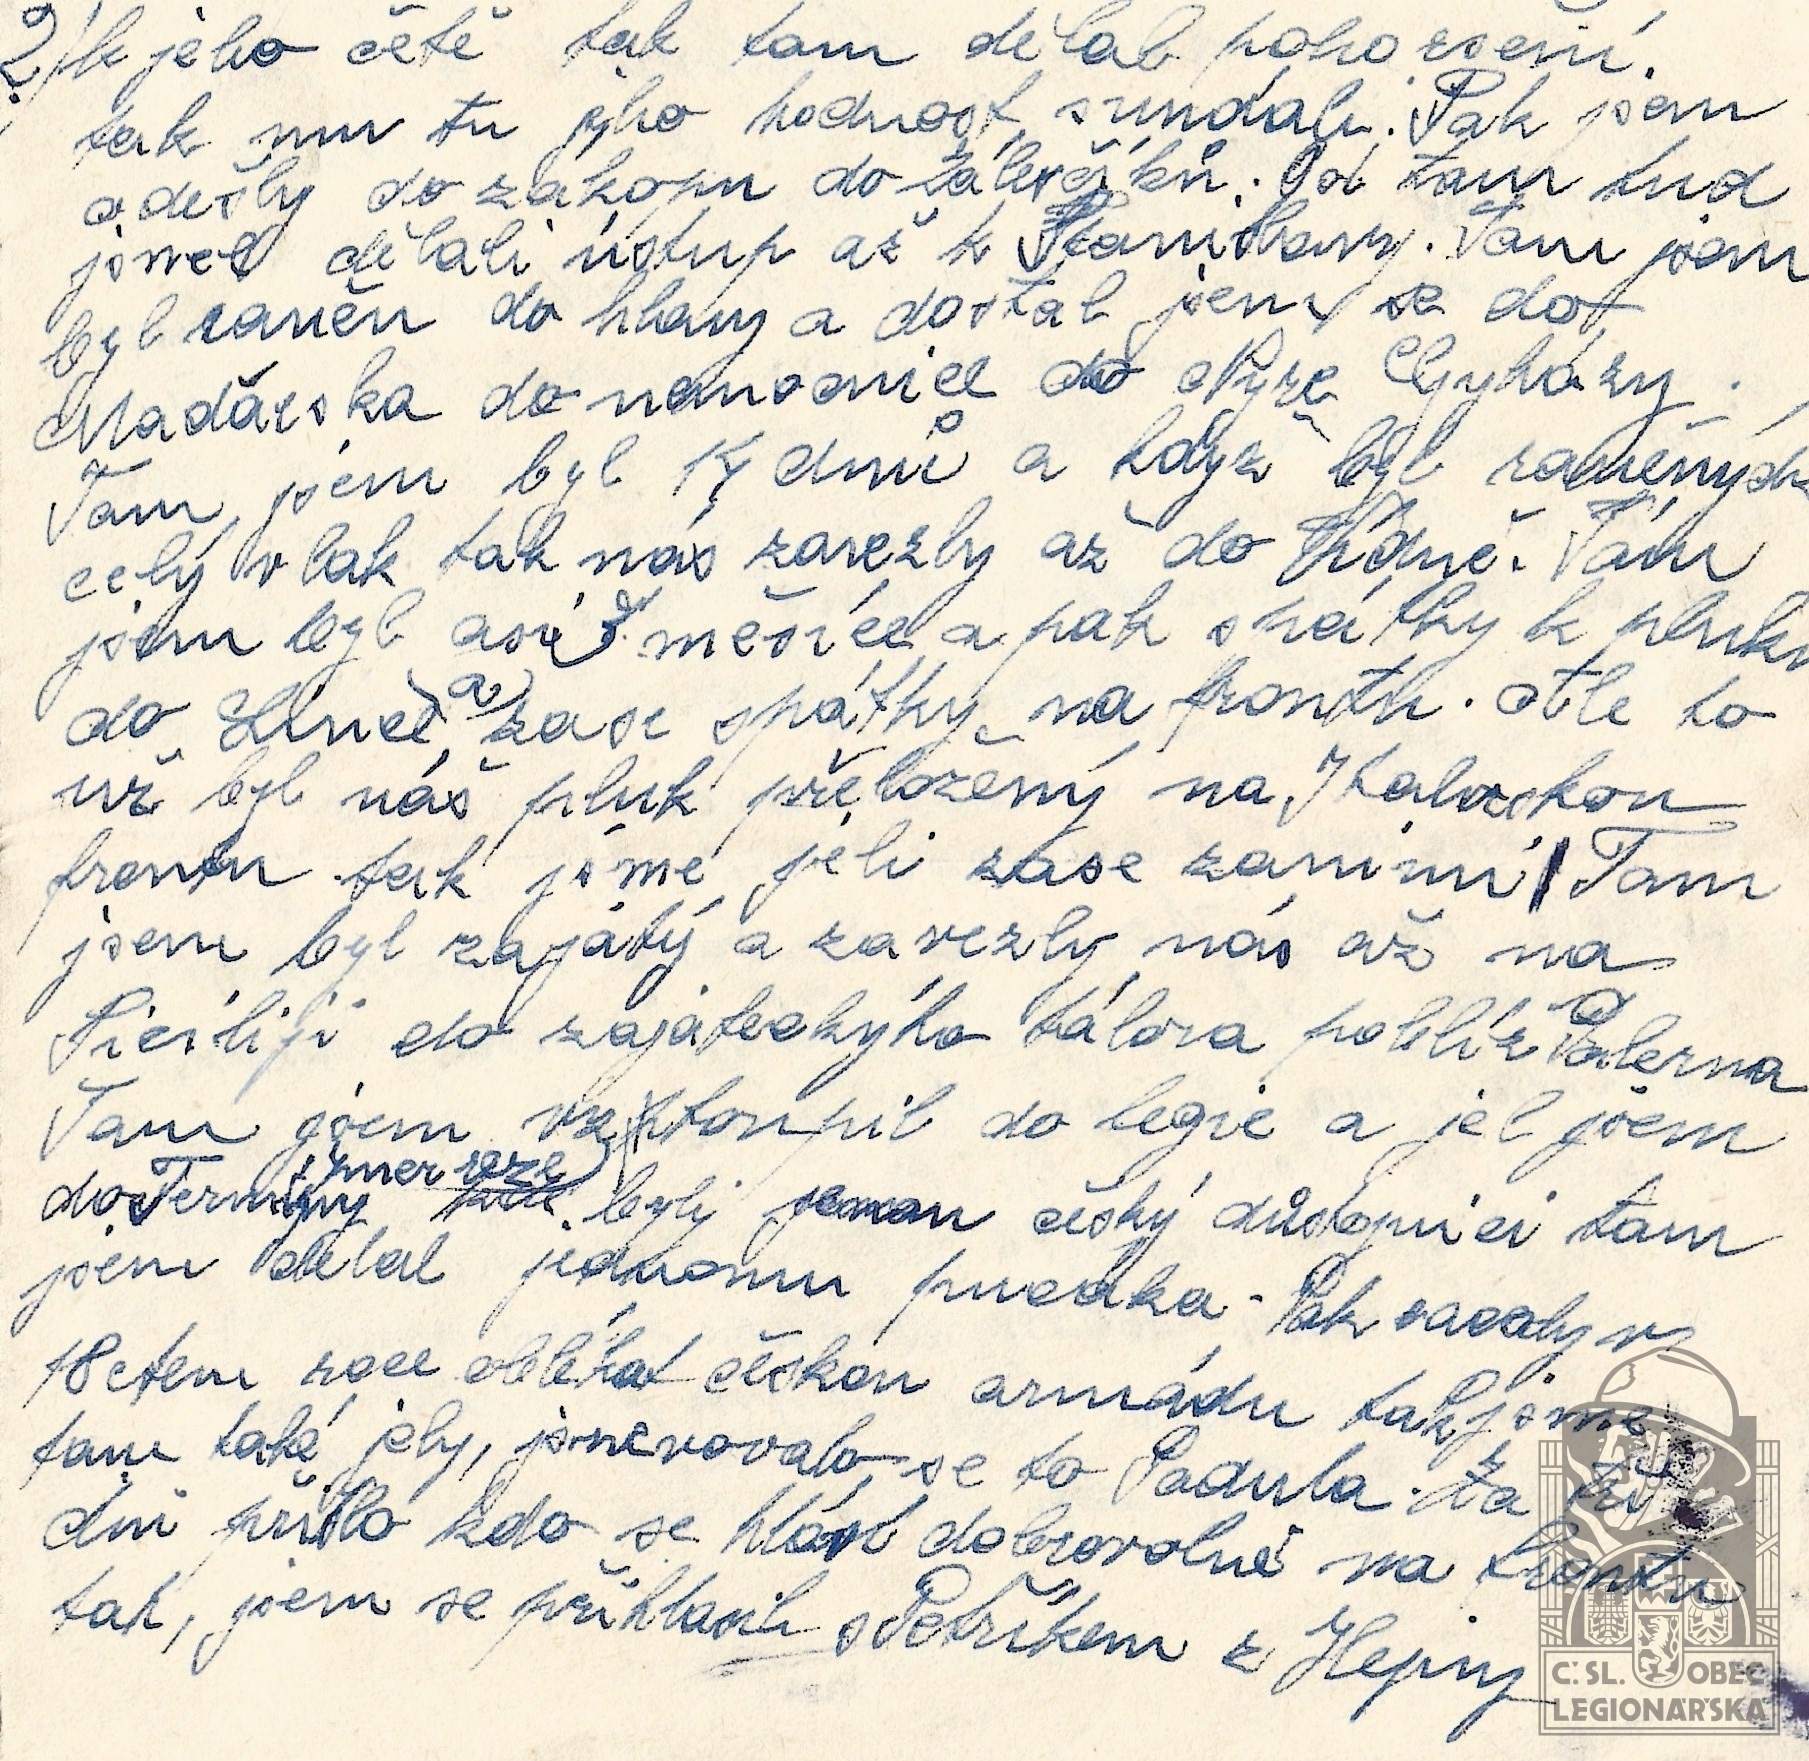 2) k jeho četě tak tam dělal pohoršení.
tak mu tu jeho hodnost sundaly. Pak jsem
odešly do zákopu do Zálesčíků. Od tam tud
jsmet dělali ústup až k Stanislavy. Tam jsem
byl raněn do hlavy a dostal jsem se do
Maďárska do nemocnice do Nyře Gyházy.
Tam jsem byl 14 dnů a když byl raněných
celý vlak tak nás zavezly až do Vídně. Tam
jsem byl asi měsíce a pak spátky k pluku
do Lince a zase spátky na frontu. Ale to
už byl náš pluk přeložený na Italskou
frontu tak jsme jeli zase zanimi Tam
jsem byl zajátý a zavezly nás až na
Sicíliji do zajáteckýho tábora poblíž Palerma
Tam jsem vstoupil do legie a jel jsem
do byly český důstojníci tam
jsem dělal jednomu pucáka. Pak začaly v
18ctem roce oblékat českou armádu tak jsme
tam také jely, jmenovalo se to Padula. Za tři
dni přišlo kdo se hlásil dobrovolně na frontu
tak, jsem se přihlasil s Petříkem z Hejny
Č.SL. OBEC
LEGIONÁŘSKÁ